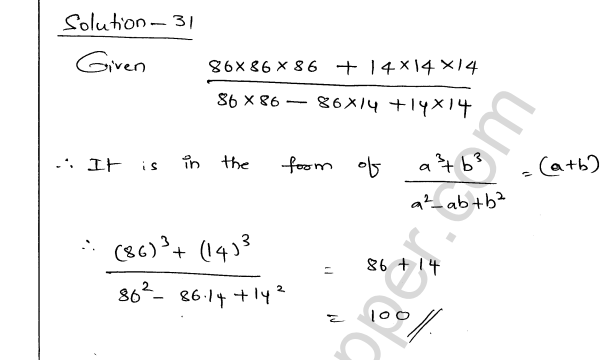 Solution - 31
Given (86×86×86 + 14×14×14)/(86×86 - 86×14 + 14×14)
∴ It is in the form of (a³+b³)/(a²-ab+b²) = (a+b)
∴ ((86)³ + (14)³)/(86² - 86.14 + 14²) = 86 + 14
= 100 //